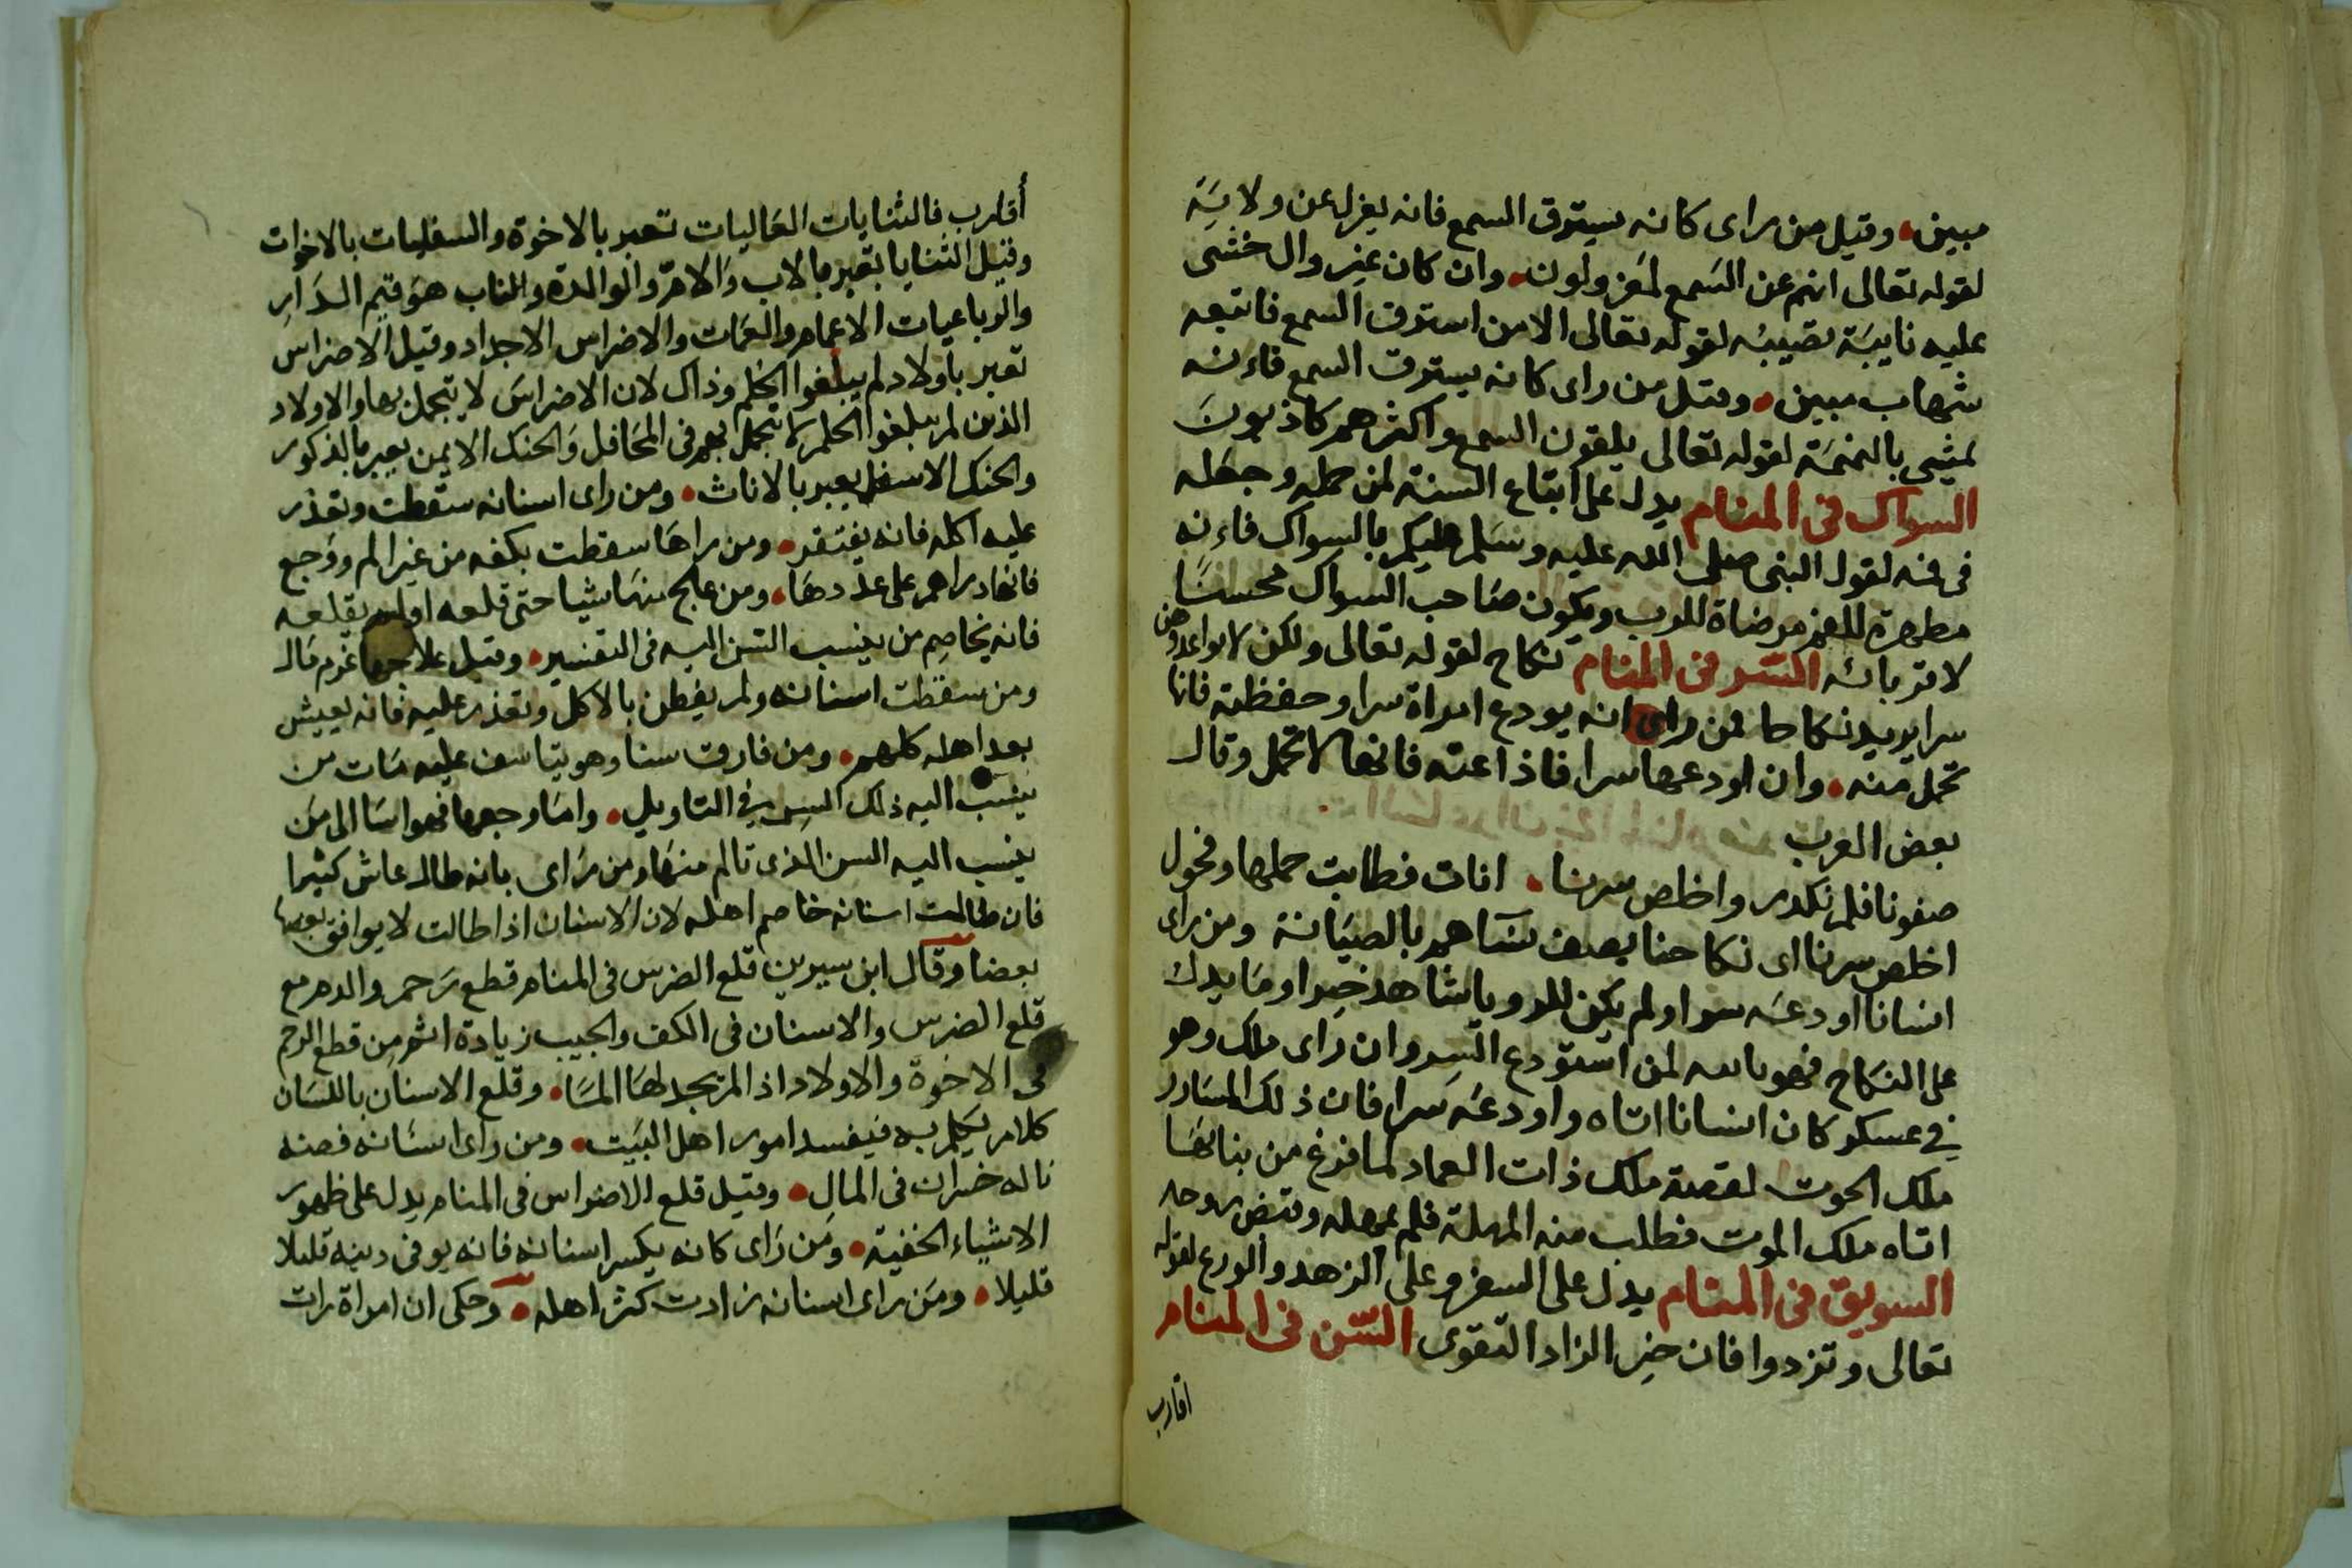 مبين وقيل من راى كانه يسترق السمع فانه يعزل عن ولايته
لقوله تعالى انهم عن السمع لمعزولون وان كان غير وال خشى
عليه نايبة تصيبه لقوله تعالى الا من استرق السمع فاتبعه
شهاب مبين وقيل من راى كانه يسترق السمع فاءنه
يمشي بالنميمة لقوله تعالى يلقون السمع واكثرهم كاذبون
السواك فى المنام يدل على اتباع السنة لمن حمله وجعله
فى فمه لقول النبى صلى الله عليه وسلم عليكم بالسواك فاءنه
مطهرة للفم مرضاة للرب ويكون صاحب السواك محسنًا
لاقربائه السّر فى المنام نكاح لقوله تعالى ولكن لا تواعدوهن
سرا يريد نكاحا فمن راى انه يودع امراة سرا وحفظته فانها
تحمل منه وان اودعها سرا فاذاعته فانها لا تحمل وقال
بعض العرب
صفونا فلم نكدر واخلص سرنا اناث فطابت حملها وفحول
اخلص سرنا اى نكاحنا يصف نساهم بالصيانة ومن راى
انسانا اودعه سرا ولم يكن للرويا شاهد خير او ما يدل
على النكاح فهو باسه لمن استودع السر وان راى ملك وهو
في عسكر كان انسانا اتاه واودعه سرا فان ذلك المسارر
ملك الموت لقصة ملك ذات العماد لما فرغ من بنائها
اتاه ملك الموت فطلب منه المهلة فلم يمهله وقبض روحه
السويق فى المنام يدل على السفر وعلى الزهد والورع لقوله
تعالى وتزدوا فان خير الزاد التقوى السّن فى المنام
اقارب
أقارب فالثنايات العاليات تعبر بالاخوة والسفليات بالاخوات
وقيل الثنايا تعبر بالاب والامّ والوالدة والناب هو قيم الدار
والرباعيات الاعمام والعمات والاضراس الاجداد وقيل الاضراس
تعبر باولاد لم يبلغوا الحلم وذاك لان الاضراس لا يتجمل بها والاولاد
الذين لم يبلغوا الحلم لا يتجمل بهم فى المحافل والحنك الايمن يعبر بالذكور
والحنك الاسفل يعبر بالاناث ومن راى اسنانه سقطت وتعذر
عليه اكله فانه يفتقر ومن راها سقطت بكفه من غير الم ووجع
فانها دراهم على عددها ومن عالج منها شيا حتى قلعه او لم يقلعه
فانه يخاصم من ينسب السن اليه فى التفسير وقيل علاجها غرم مال
ومن سقطت اسنانه ولم يفطن بالاكل وتعذر عليه فانه يعيش
بعد اهله كلهم ومن فارق سنا وهو يتاسف عليه مات من
ينسب اليه ذلك السن في التاويل واما وجعها فهو اسا الى من
ينسب اليه السن الذى تالم منها ومن راى بانه طال عاش كثيرا
فان طالت اسنانه خاصم اهله لان الاسنان اذا طالت لا يوافق بعضها
بعضا وقال ابن سيرين قلع الضرس فى المنام قطع رحم والدم مع
قلع الضرس والاسنان فى الكف والجيب زيادة اثم من قطع الرحم
فى الاخوة والاولاد اذا لم يجد لها المسا وقلع الاسنان باللسان
كلام يتكلم به فيفسد امور اهل البيت ومن راى اسنانه فضه
ناله خسران فى المال وقيل قلع الاضراس فى المنام يدل على ظهور
الاشياء الخفية ومن راى كانه يكسر اسنانه فانه يوفى دينه قليلا
قليلا ومن راى اسنانه زادت كثر اهله وحكى ان امراة رات